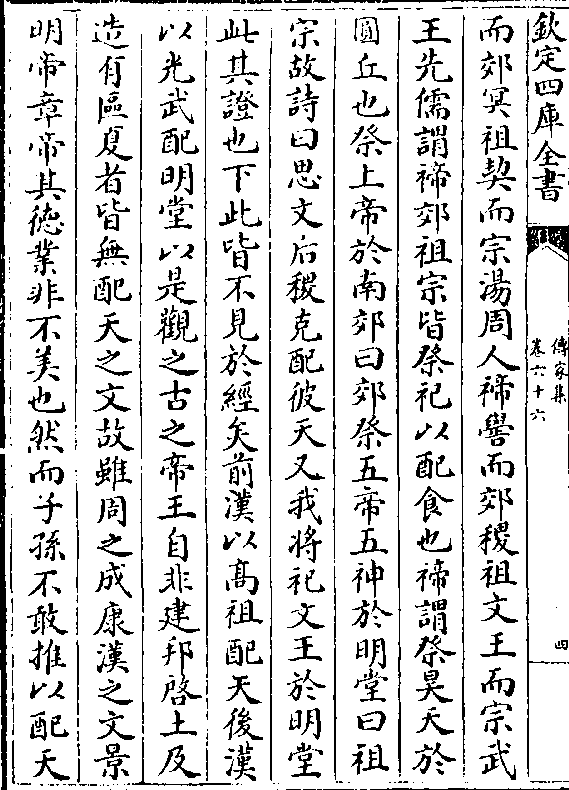 欽定四庫全書
傳家集
卷六十六
四
而郊冥祖契而宗湯周人禘嚳而郊稷祖文王而宗武
王先儒謂禘郊祖宗皆祭祀以配食也禘謂祭昊天於
圓丘也祭上帝於南郊曰郊祭五帝五神於明堂曰祖
宗故詩曰思文后稷克配彼天又我將祀文王於明堂
此其證也下此皆不見於經矣前漢以髙祖配天後漢
以光武配明堂以是觀之古之帝王自非建邦啓土及
造有區夏者皆無配天之文故雖周之成康漢之文景
明帝章帝其徳業非不美也然而子孫不敢推以配天